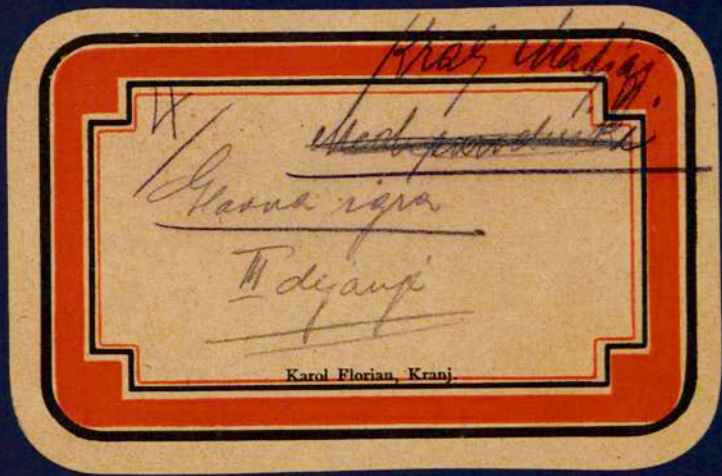 Kralj Matjaž.
4/
Glavna igra
III dejanje
Karol Florian, Kranj.